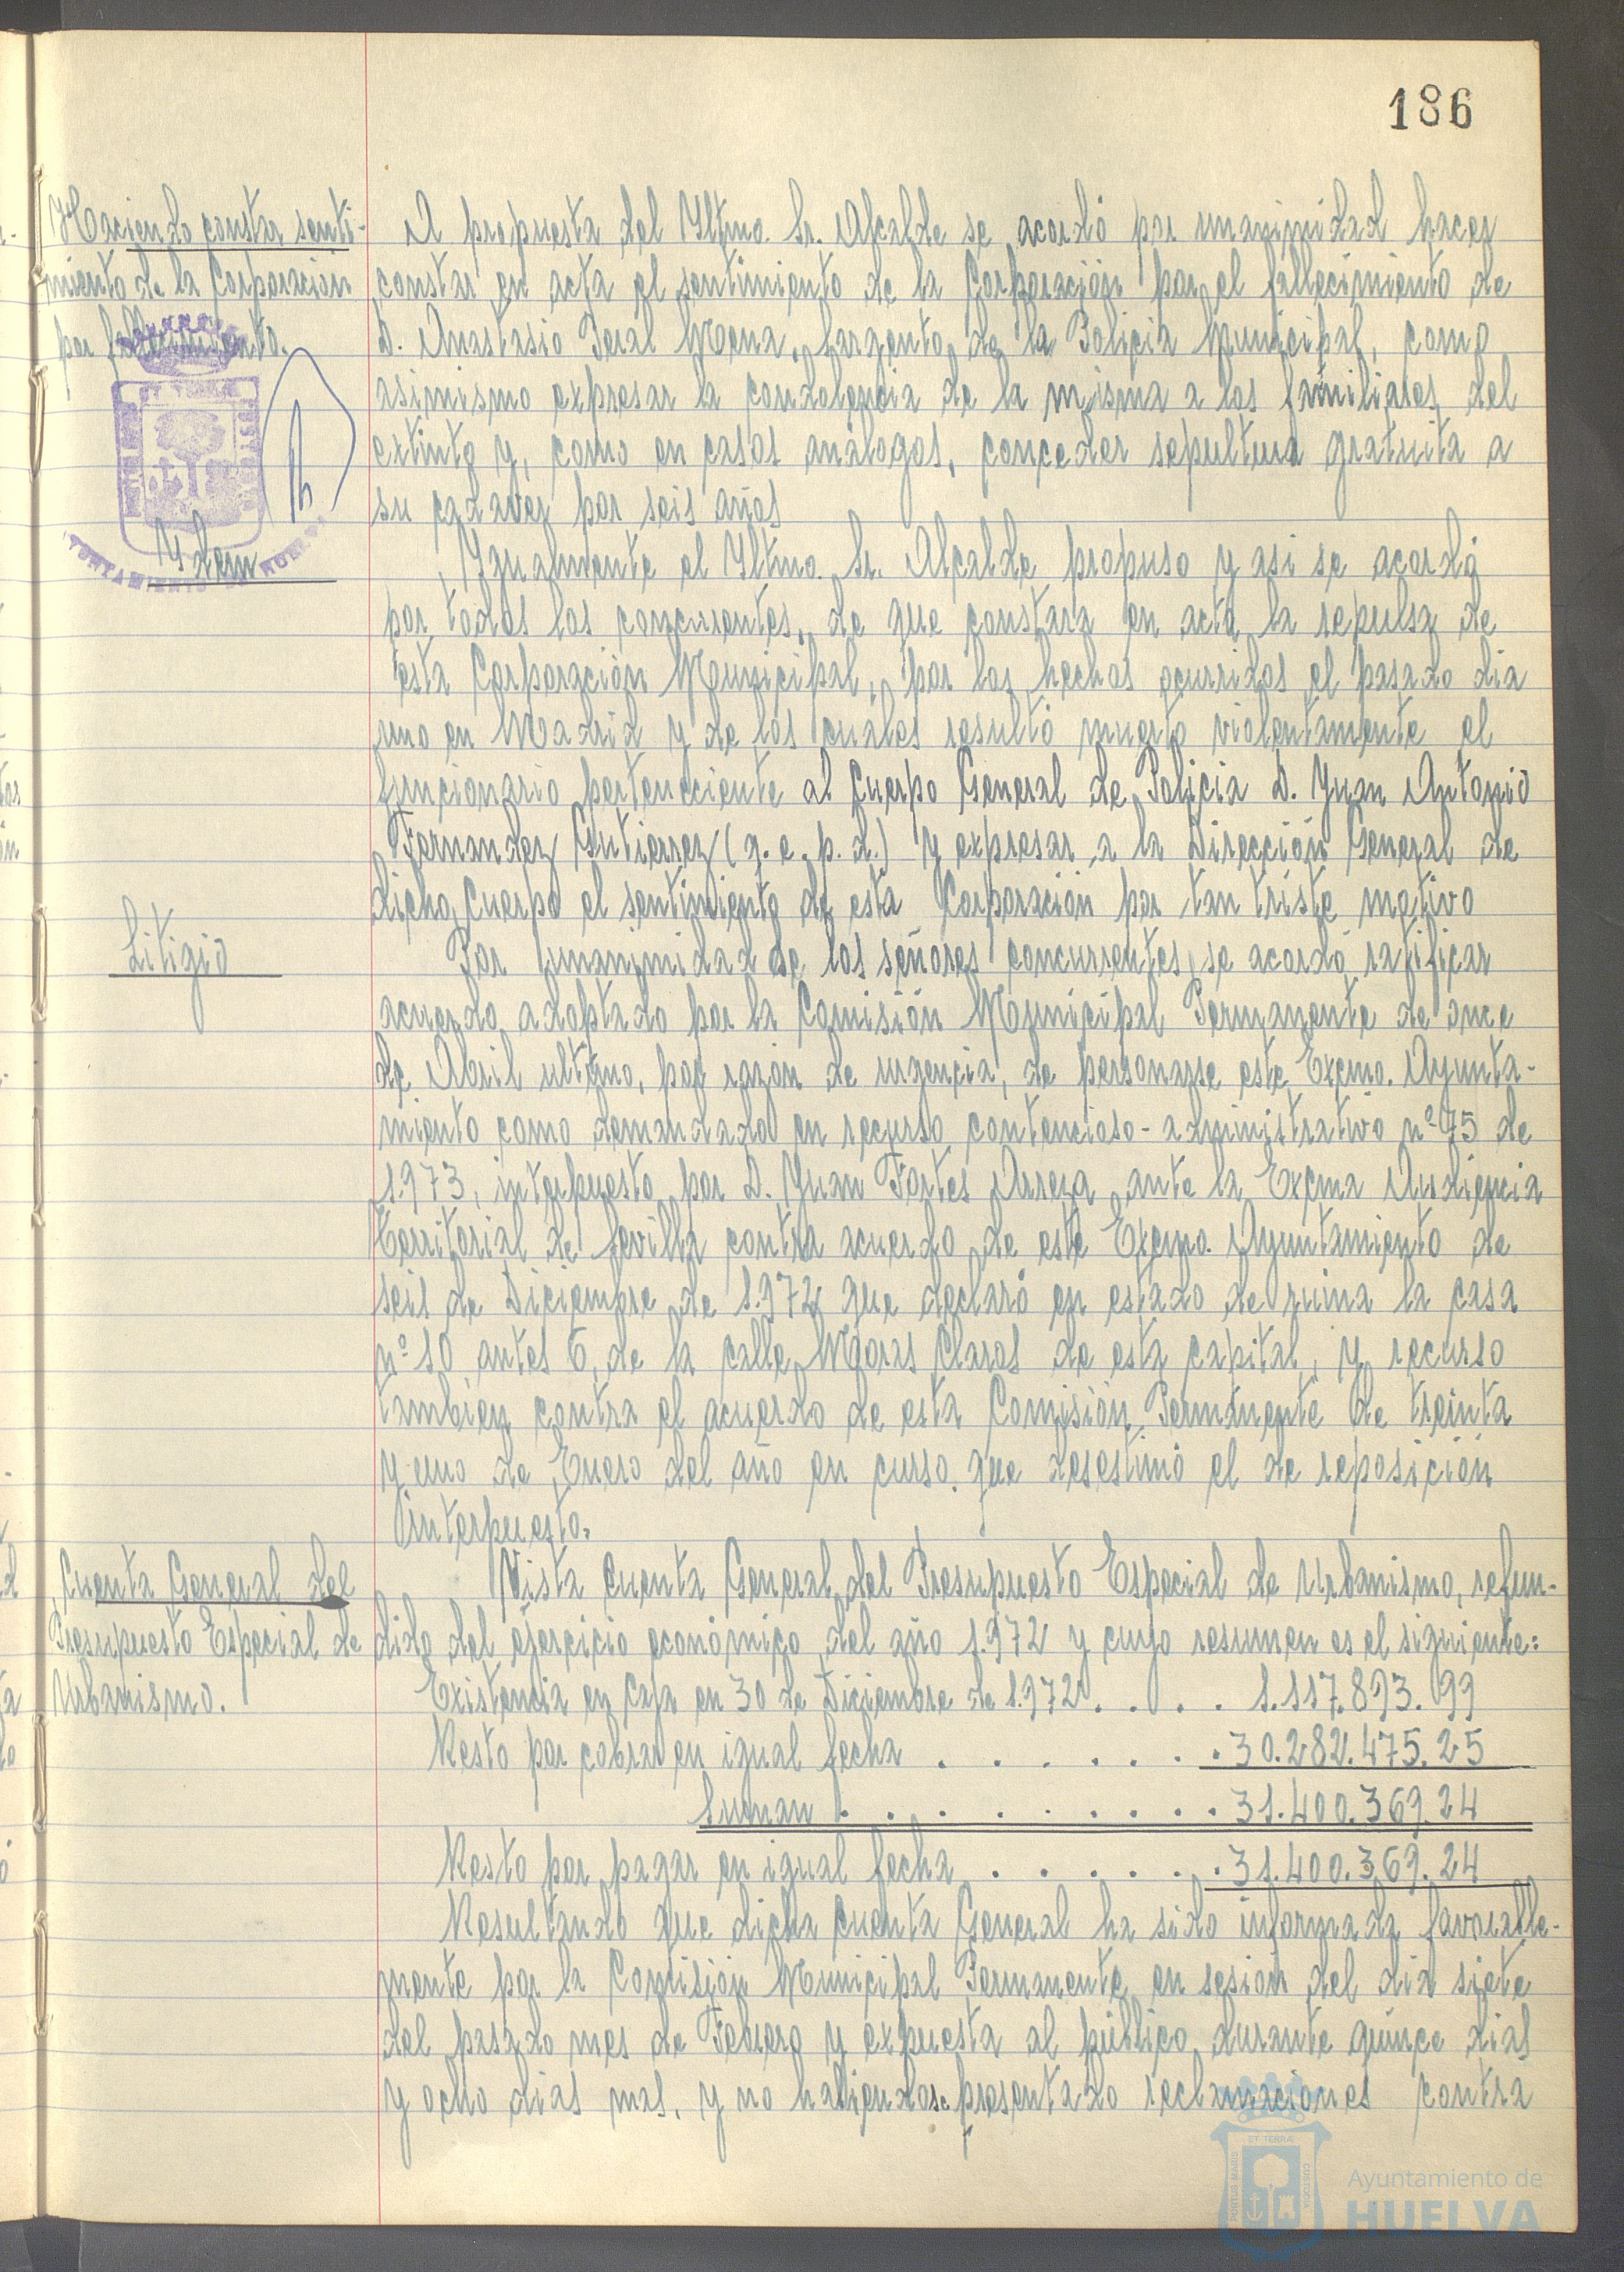 186
Haciendo constar senti-
miento de la Corporación
por fallecimiento.
A propuesta del Yltmo. Sr. Alcalde se acordó por unanimidad hacer
constar en acta el sentimiento de la Corporación por el fallecimiento de
D. Anastasio Peral Mena, Sargento de la Policia Municipal, como
asimismo expresar la condolencia de la misma a los familiares del
extinto y, como en casos análogos, conceder sepultura gratuita a
su cadaver por seis años
Ydem
Ygualmente el Yltmo. Sr. Alcalde propuso y asi se acordó
por todos los concurentes, de que constara en acta la repulsa de
esta Corporación Municipal, por los hechos ocurridos el pasado dia
uno en Madrid y de los cuáles resultó muerto violentamente el
funcionario perteneciente al Cuerpo General de Policia D. Juan Antonio
Fernandez Gutierrez (q. e. p. d.) y expresar a la Dirección General de
dicho Cuerpo el sentimiento de esta Corporación por tan triste motivo
Litigio
Por unanimidad de los señores concurrentes, se acordó ratificar
acuerdo adoptado por la Comisión Municipal Permanente de once
de Abril ultimo, por razón de urgencia, de personarse este Excmo. Ayunta-
miento como demandado en recurso contencioso-administrativo nº 75 de
1.973, interpuesto por D. Juan Fortes Arreza ante la Excma Audiencia
territorial de Sevilla contra acuerdo de este Excmo. Ayuntamiento de
seis de Diciembre de 1.972 que declaró en estado de ruina la casa
nº 10 antes 6, de la calle Moras Claros de esta capital, y recurso
tambien contra el acuerdo de esta Comisión Permanente de treinta
y uno de Enero del año en curso que desestimó el de reposición
interpuesto.
Cuenta General del
Presupuesto Especial de
Urbanismo.
Vista Cuenta General del Presupuesto Especial de Urbanismo, refun-
dido del ejercicio económico del año 1.972 y cuyo resumen es el siguiente:
Existencia en Caja en 30 de Diciembre de 1.972 . . . . . 1.117.893.99
Resto por cobrar en igual fecha . . . . . . . 30.282.475.25
Suman . . . . . . . . . . 31.400.369.24
Resto por pagar en igual fecha . . . . . . 31.400.369.24
Resultando que dicha cuenta General ha sido informada favorable-
mente por la Comisión Municipal Permanente en sesión del dia siete
del pasado mes de Febrero y expuesta al público durante quince dias
y ocho dias mas, y no habiendose presentado reclamaciones contra
Ayuntamiento de
HUELVA